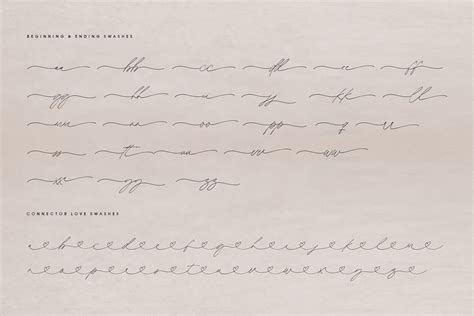 BEGINNING & ENDING SWASHES
aa bb cc dd ee ff
gg hh ii jj kk ll
mm nn oo pp q rr
ss tt uu vv ww
xx yy zz
CONNECTOR LOVE SWASHES
a b c d e f g h i j k l m
n o p q r s t u v w x y z